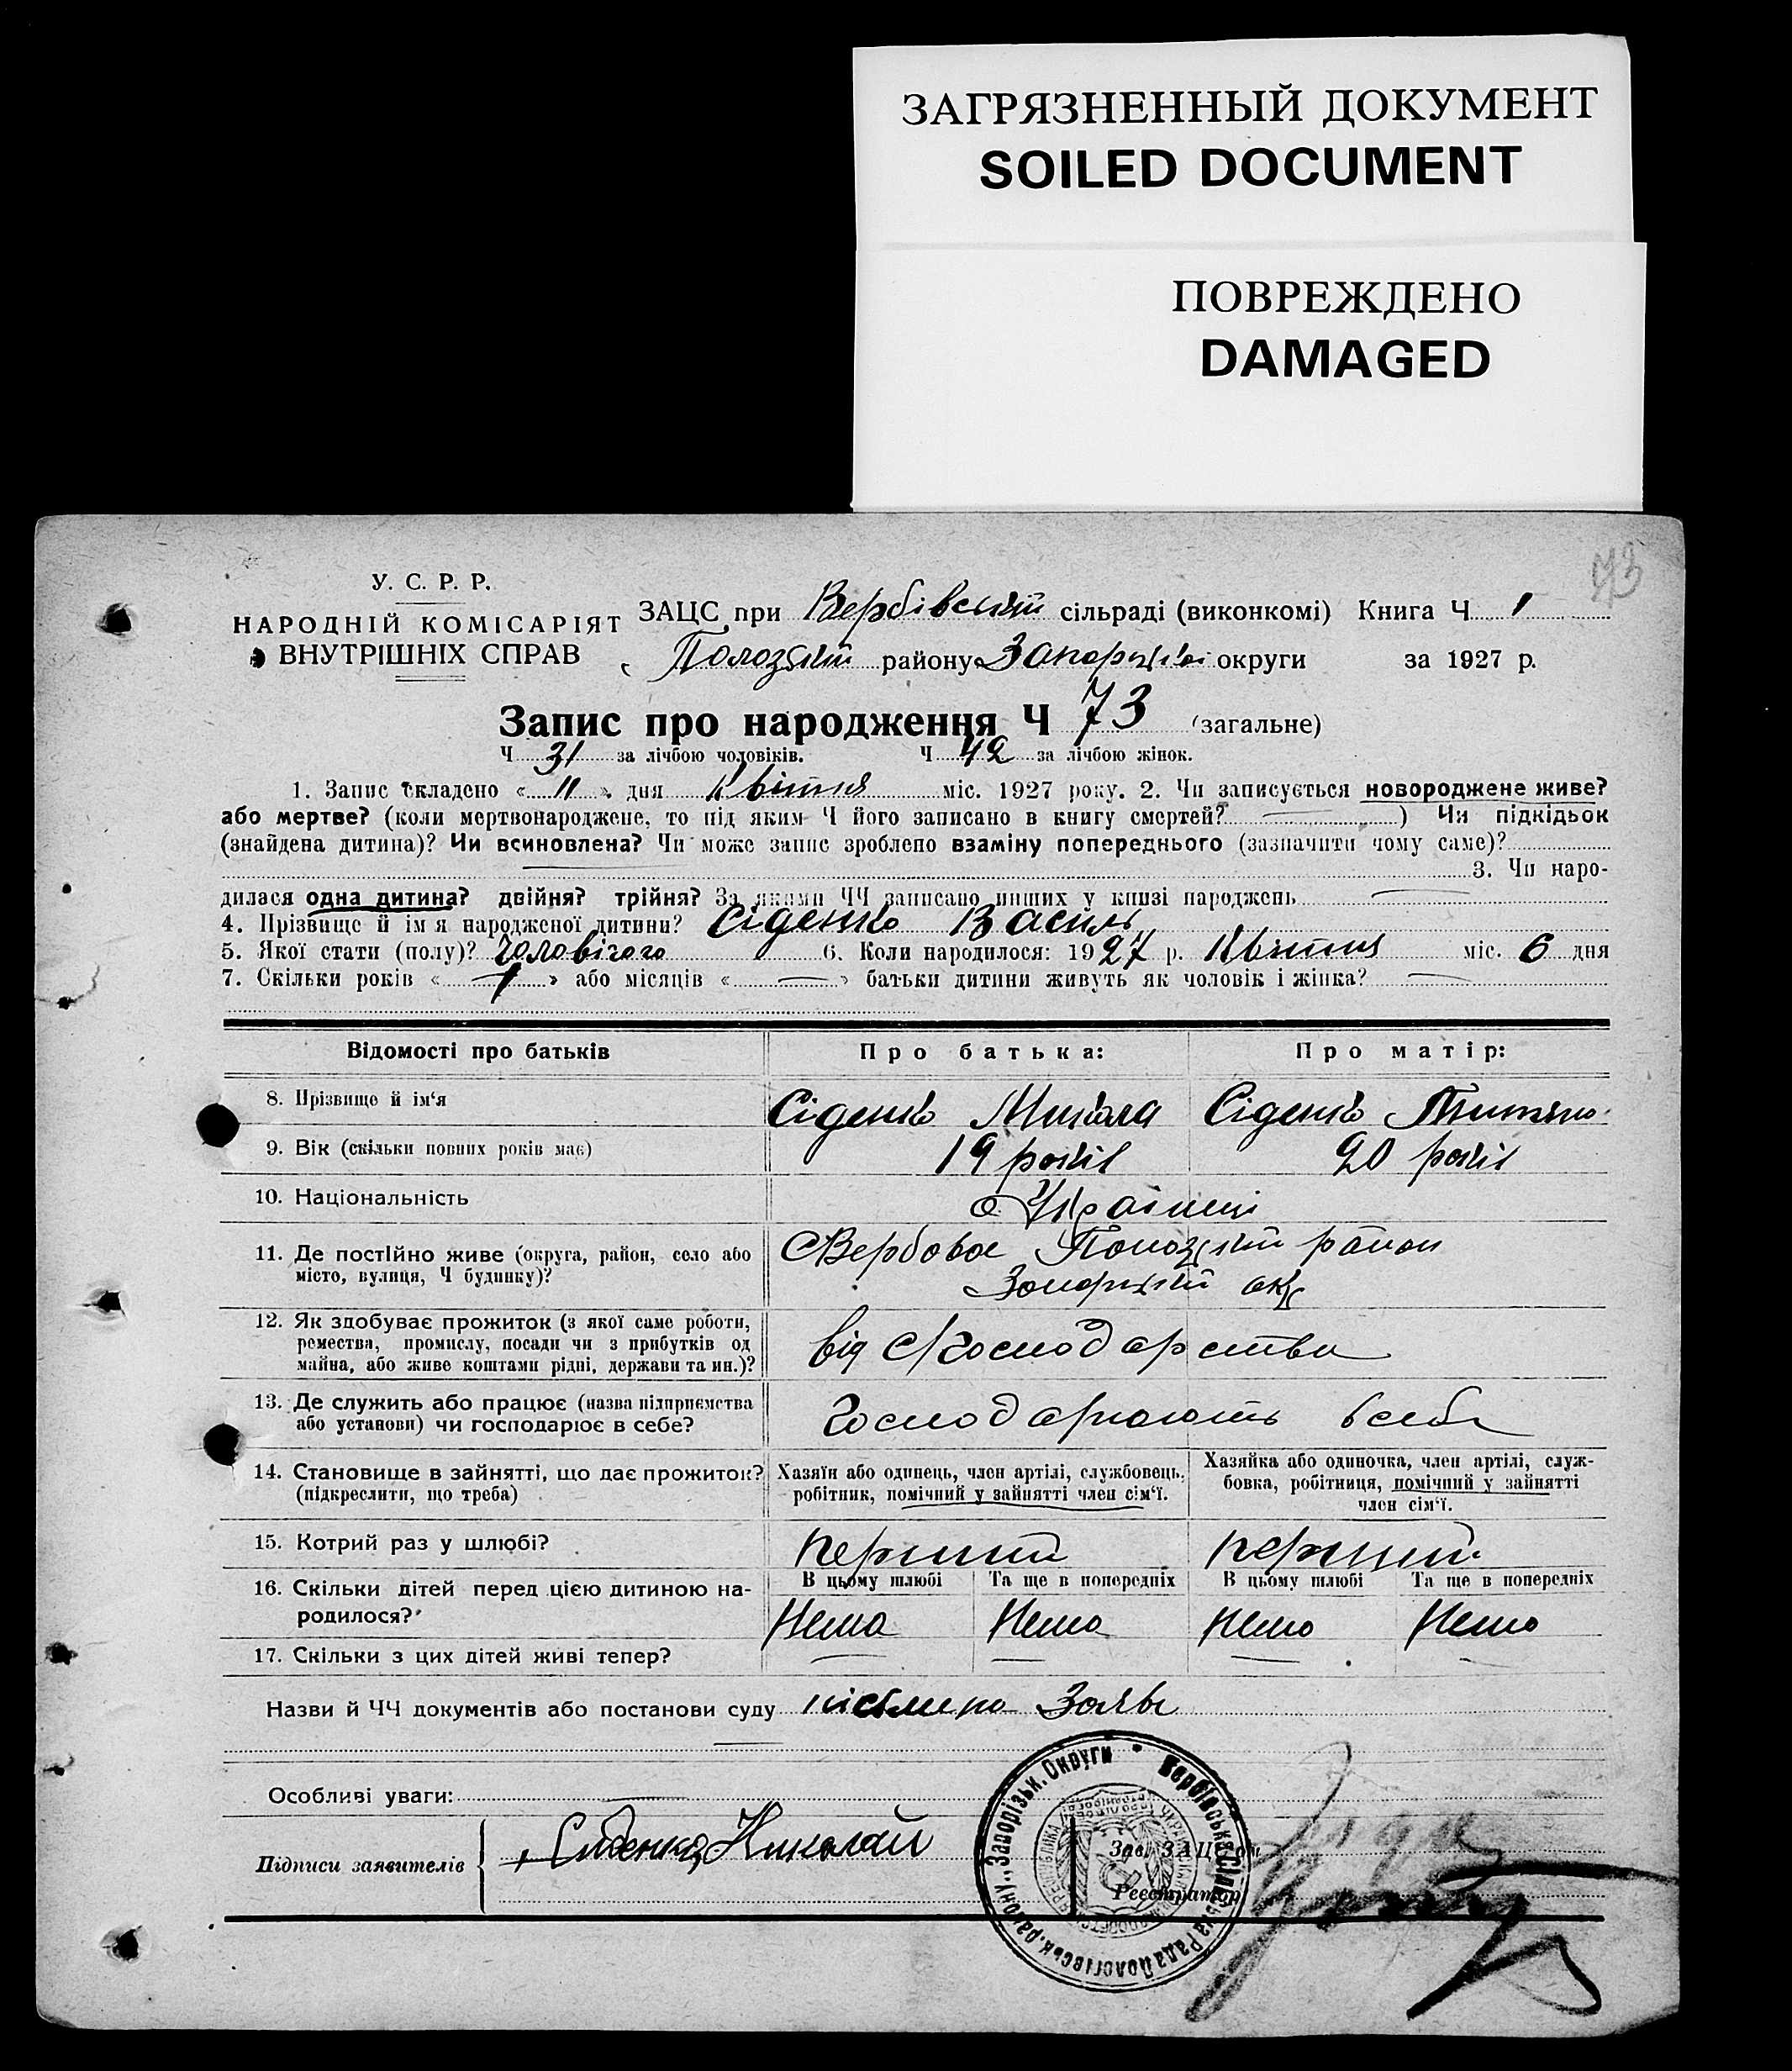 ЗАГРЯЗНЕННЫЙ ДОКУМЕНТ
SOILED DOCUMENT
ПОВРЕЖДЕНО
DAMAGED
73
У. С. Р. Р.
НАРОДНІЙ КОМІСАРІЯТ
ВНУТРІШНІХ СПРАВ
ЗАЦС при Вербівській сільраді (виконкомі) Книга Ч 1
Пологзький району Запоризької округи за 1927 р.
Запис про народження Ч 73 (загальне)
Ч 31 за лічбою чоловіків. Ч 42 за лічбою жінок.
1. Запис складено « 11 » дня Квітня міс. 1927 року. 2. Чи записується новороджене живе?
або мертве? (коли мертвонароджене, то під яким Ч його записано в книгу смертей? ) Чи підкідьок
(знайдена дитина)? Чи всиновлена? Чи може запис зроблено взаміну попереднього (зазначити чому саме)?
3. Чи наро-
дилася одна дитина? двійня? трійня? За якими ЧЧ записано инших у книзі народжень
4. Прізвище й ім'я народженої дитини? Сіденко Василь
5. Якої стати (полу)? Чоловічого 6. Коли народилося: 1927 р. Квітня міс. 6 дня
7. Скільки років « 1 » або місяців « — » батьки дитини живуть як чоловік і жінка? —
Відомості про батьків Про батька: Про матір:
8. Прізвище й ім'я Сіденко Микола Сіденко
9. Вік (скільки повних років має) 19 років 20 років
10. Національність Українці
11. Де постійно живе (округа, район, село або С Вербове Пологзький район
місто, вулиця, Ч будинку)? Запоризький окр
12. Як здобуває прожиток (з якої саме роботи,
ремества, промислу, посади чи з прибутків од
майна, або живе коштами рідні, держави та ин.)? від С/господарства
13. Де служить або працює (назва підприємства
або установи) чи господарює в себе? Господарюють в себе
14. Становище в зайнятті, що дає прожиток?
(підкреслити, що треба)
Хазяїн або одинець, член артілі, службовець,
робітник, помічний у зайнятті член сім'ї.
Хазяйка або одиночка, член артілі, служ-
бовка, робітниця, помічний у зайнятті
член сім'ї.
15. Котрий раз у шлюбі? перший перший
16. Скільки дітей перед цією дитиною на-
родилося?
В цьому шлюбі Та ще в попередніх В цьому шлюбі Та ще в попередніх
Нема Нема Нема Нема
17. Скільки з цих дітей живі тепер? — — — —
Назви й ЧЧ документів або постанови суду Заява
Особливі уваги:
Підписи заявителів Сиденко Николай
Зав. ЗАЦС'ом
Реєстратор
Вербівська Сільська Рада Пологівськ. району, Запорізьк. Округи